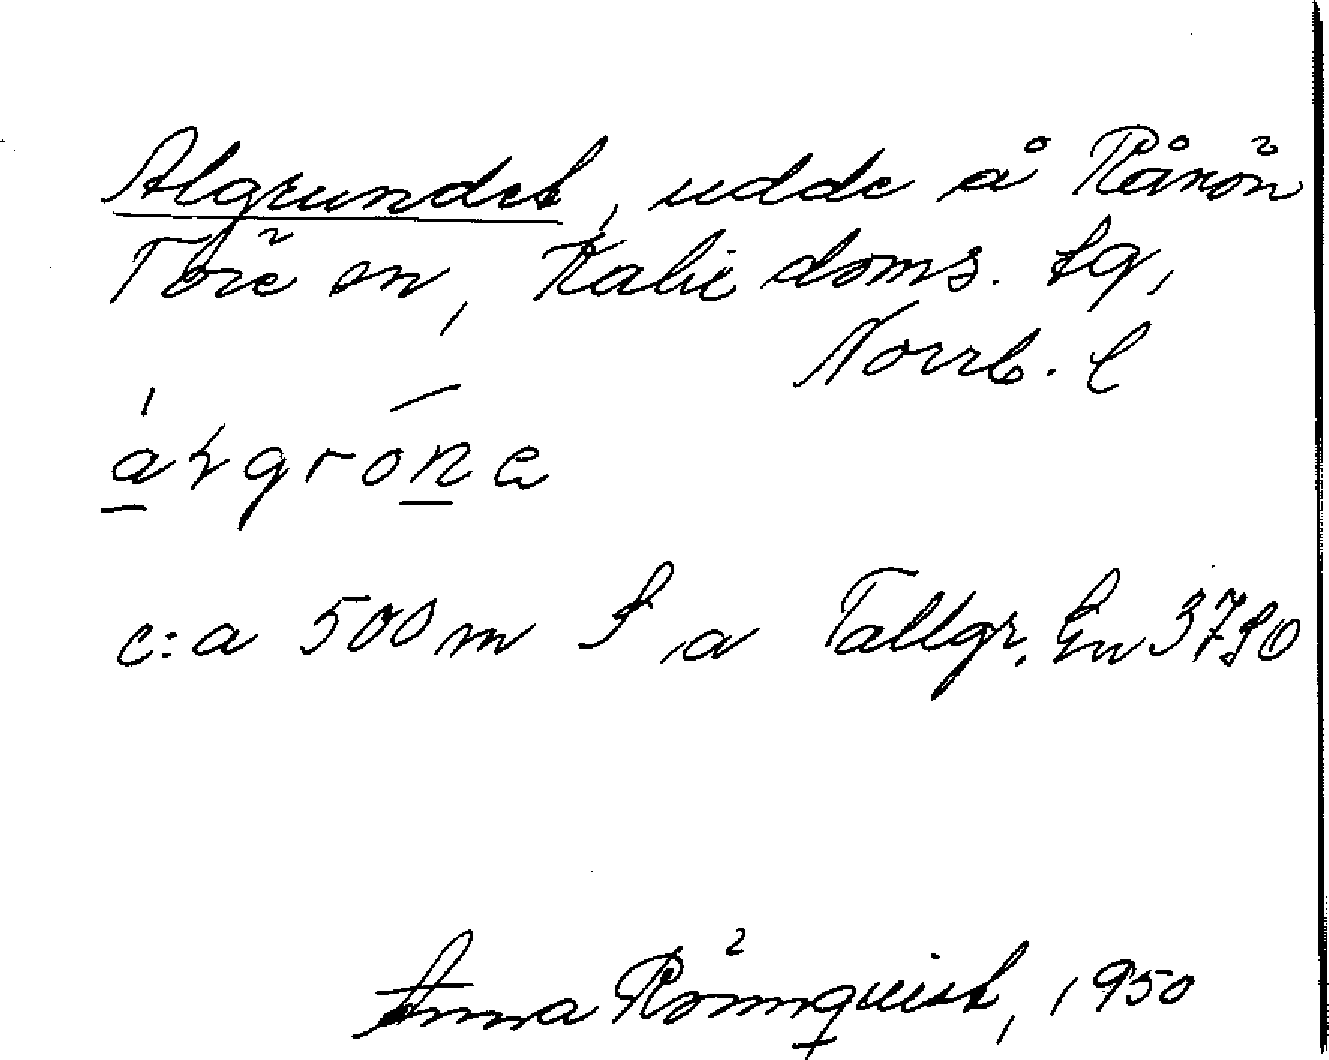 Algrundet, udde å Rånön
Töre sn, Kalix doms. tg,
Norrb. l
c:a 500 m S a Tallgr. En 3790
Anna Rönnqvist, 1950